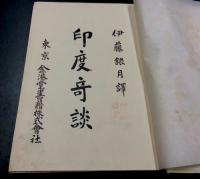 伊藤銀月譯
印度奇談
東京 金港堂書籍株式會社